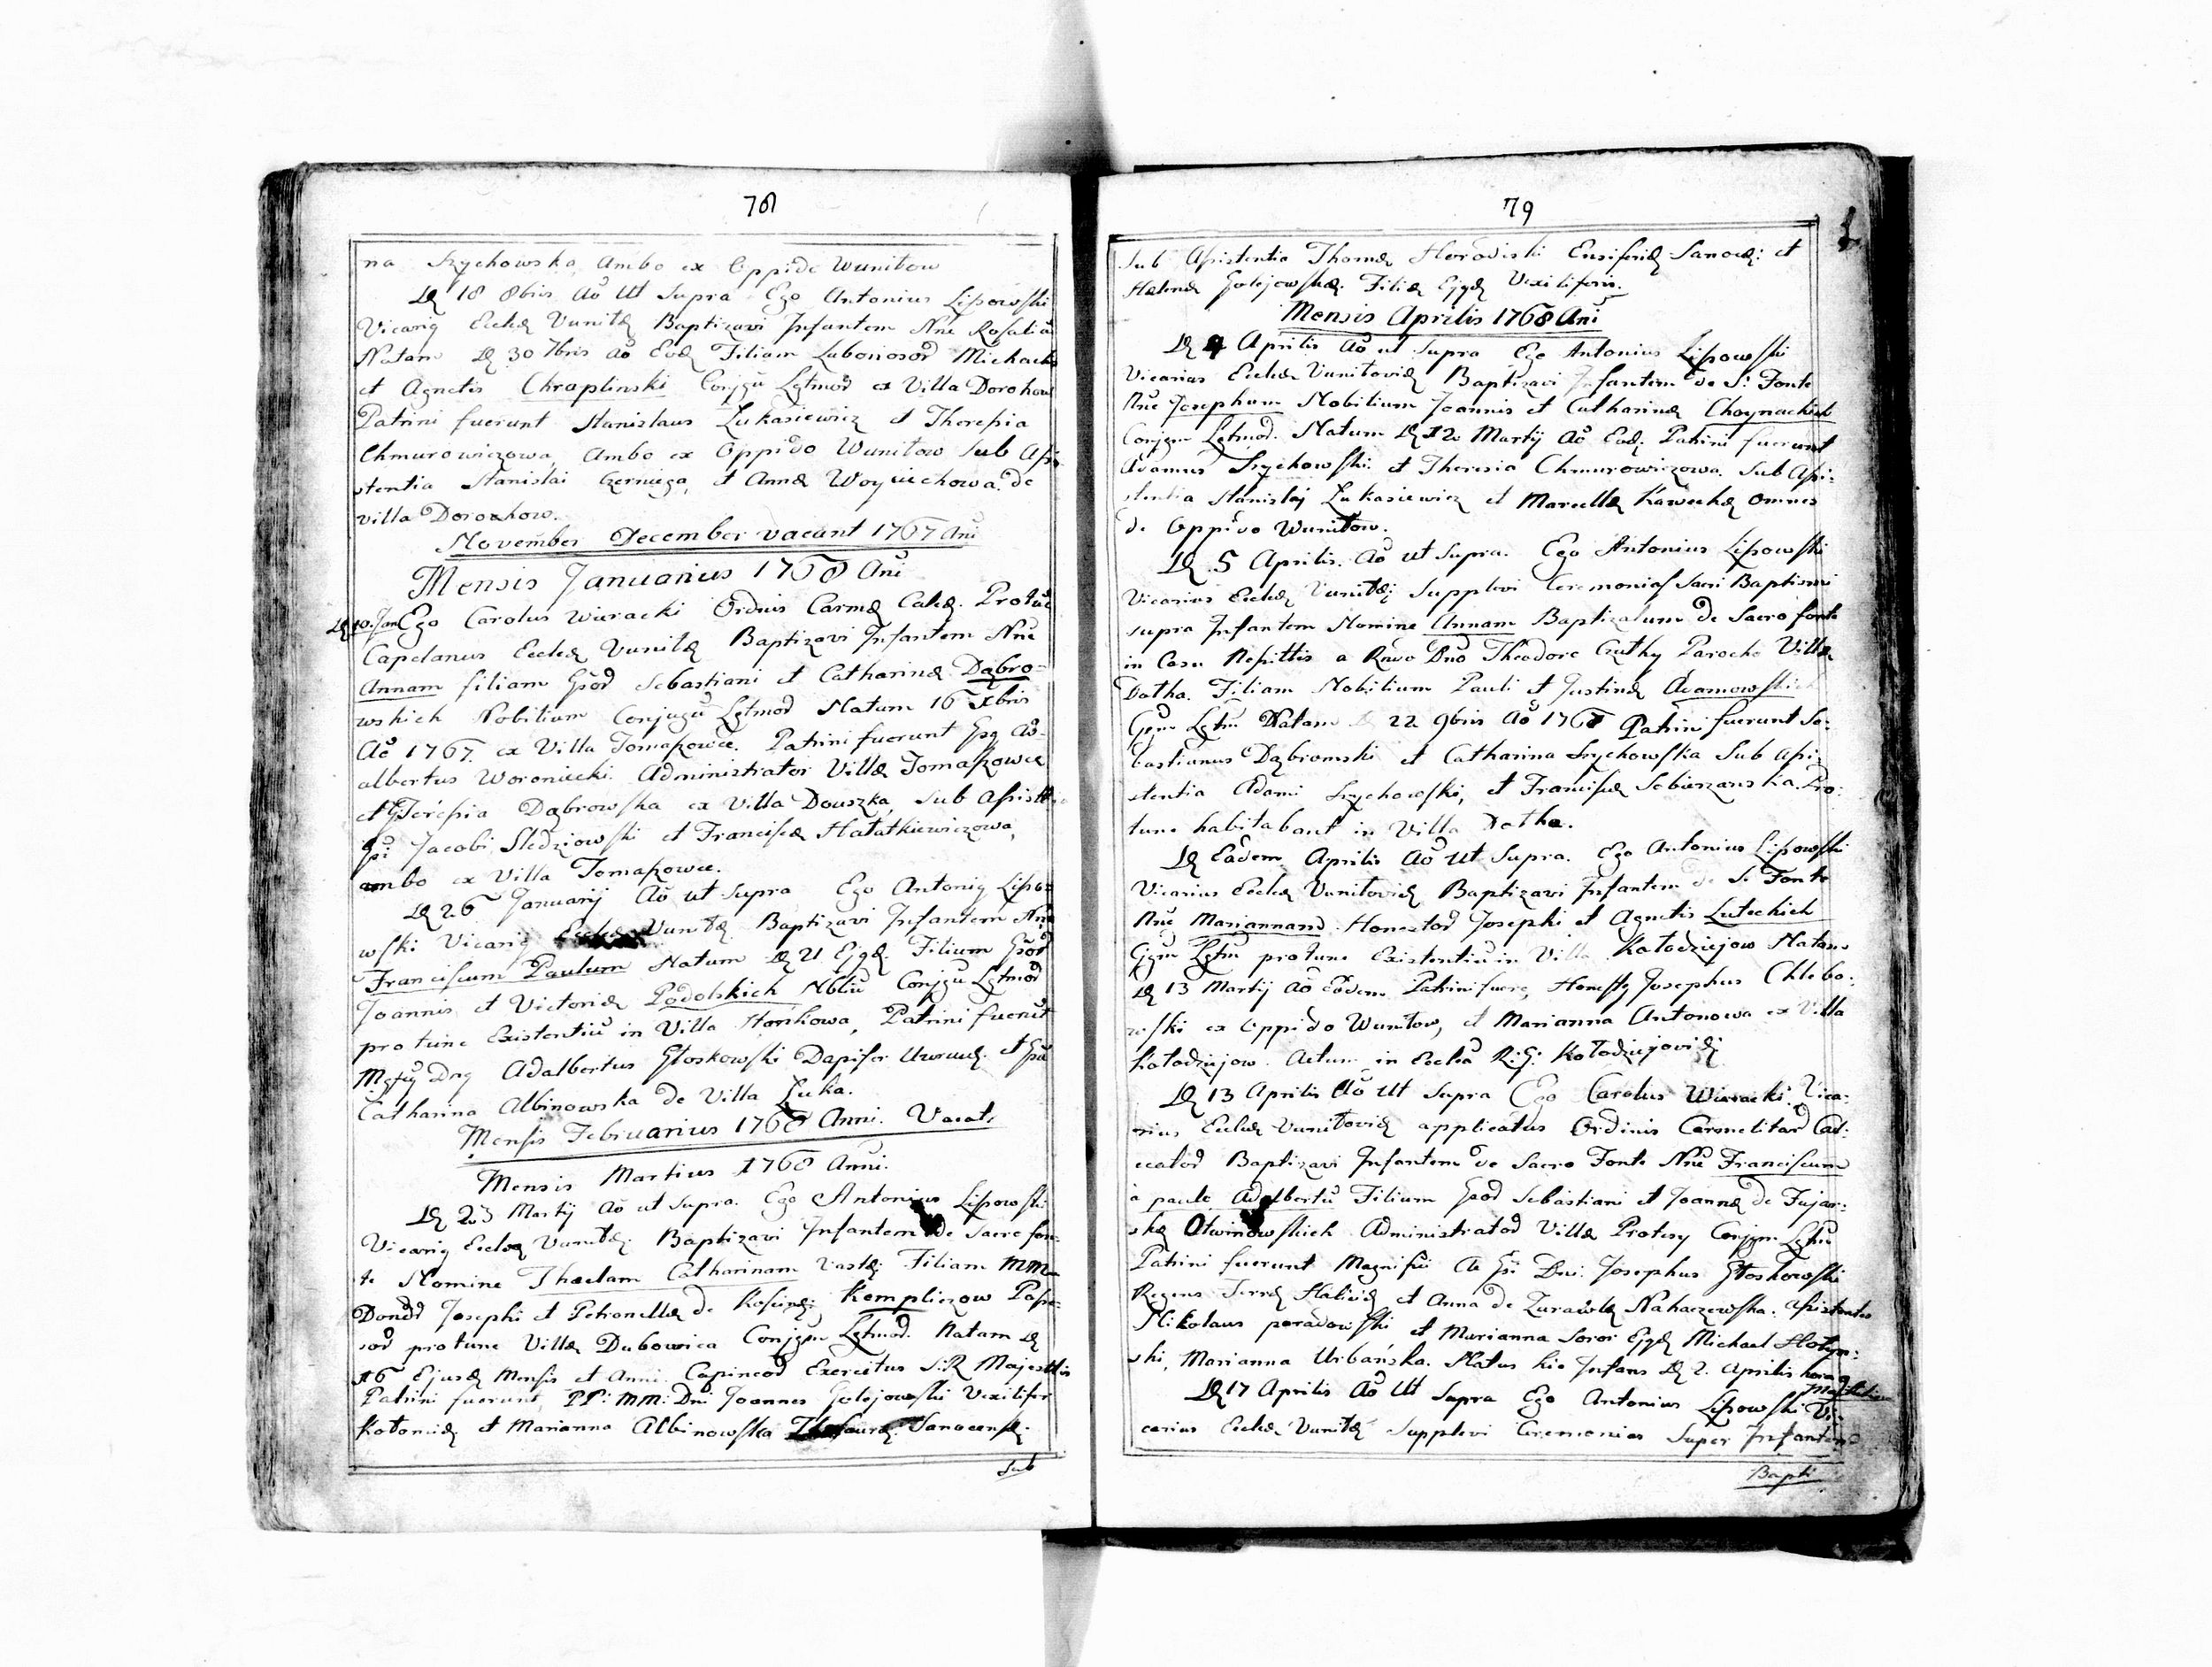 78
na Szychowska, Ambo ex Oppido Wunitow
Dę 18 8bris Aō Ut Supra Ego Antonius Lipowski
Vicarig Eccłę Vunitę Baptizavi Infantem Nne Rosaliā
Natam Dę 30 7bris aō Eođ Filiam Laboriosođ Michaelis
et Agnetis Chraplinski Conjgū Lgtmođ ex Villa Dorohow
Patrini fuerunt Stanislaus Łukasiewicz et Theresia
Chmurowiczowa, Ambo ex Oppido Wunitow Sub Assi
stentia Stanislai Czerniega, et Annę Woyciechowa de
villa Dorohow.
November December vacant 1767 Ani
Mensis Januarius 1768 Ani
Dę 10. Jan Ego Carolus Wieracki Ordnis Carmę Calcę. Protūc
Capelanus Eccłę Vunitę Baptizavi Infantem Nne
Annam filiam Gsođ Sebastiani et Catharinę Dąbro-
wskich Nobilium Conjugū Lgtmođ Natam 16 Xbris
Aō 1767. ex Villa Tomaszowce. Patrini fuerunt Gsg Ađ-
albertus Woroniecki Administrator Villę Tomaszowce
et G Teresia Dąbrowska ex Villa Douszka, Sub Assistt
Gsi Jacobi Sledziowski et Franciscę Hałatkiewiczowa,
ambo ex Villa Tomaszowce.
Dę 26 Januarij Aō ut Supra Ego Antonig Lipo-
wski Vicarig Eccłę Vunitę Baptizavi Infantem Nne
Franciscum Paulum Natum Dę 21 Ejgđ. Filium Gsođ
Joannis et Victorię Podolskich Nbliū Conjgū Lgtmođ
pro tunc Existentiū in Villa Hańkowa, Patrini fuerūt
Mgfcg Dng Adalbertus Głoskowski Dapifer et Gsa
Catharina Albinowska de Villa Łuka.
Mensis Februarius 1768 Anni. Vacat.
Mensis Martius 1768 Anni.
Dę 23 Martij Aō ut Supra. Ego Antonius Lipowski
Vicarig Eccłę Vunitę Baptizavi Infantem de Sacro fon-
te Nomine Theclam Catharinam Filiam MM
Donođ Josephi et Petronellę de Kompliczow Posse-
sođ protunc Villę Dubowica Conjgm Lgtmođ. Natam Dę
16 Ejusđ Mensis et Anni. Exercitus S:R Majesttis
Patrini fuerunt PP: MM: Dni Joannes Golejowski Vexilifer
Kołomię et Marianna Albinowska Sanocensę.
Sub
79
Sub Assistentia Thomę Horodiski Ensiferię Sanocę: et
Helenę Golejowskę. Filię Ejgđ Vexiliferis.
Mensis Aprilis 1768 Ani
Dę 4 Aprilis Aō ut Supra Ego Antonius Lipowski
Vicarius Eccłę Vunitovię Baptizavi Infantem de S: Fonte
Nne Josephum Nobilium Joannis et Catharinę Choynackich
Conjgm Lgtmođ. Natum Dę 12 Martij Aō Eođ: Patrini fuerunt
Adamus Szychowski et Theresia Chmurowiczowa. Sub Assi:
stentia Stanislaj Łukasiewicz et Marcellę Kaweckę omnes
de Oppido Wunitow.
Dę 5 Aprilis. Aō ut Supra. Ego Antonius Lipowski
Vicarius Eccłę Vunitę Supplevi Ceremonias Sacri Baptismi
supra Infantem Nomine Annam Baptizatum de Sacro fonte
in Casu Nessittis a Rnvo Dno Theodoro Parocho Villę
Dołha. Filiam Nobilium Pauli et Justinę Adamowskich
Cgm Lgtm Natam 22 9bris Aō 1767 Patrini fuerunt Se:
bastianus Dąbromski et Catharina Szychowska Sub Assi:
stentia Adami Szychowski, et Franciscę Sobieszanska. Pro:
tunc habitabant in Villa Dołha.
Dę Eadem Aprilis Aō Ut Supra. Ego Antonius Lipowski
Vicarius Eccłę Vunitovię Baptizavi Infantem de S: Fonte
Nne Mariannam Honestođ Josephi et Agnetis Luteckich
Cgm Lgtm protunc Existentiū in Villa Kołodziejow Natam
Dę 13 Martij aō Eodem Patrini fuere, Honestg Josephus Chlebo:
wski ex Oppido Wunitow, et Marianna Antonowa ex Villa
Kołodziejow. Actum in Eccła R:G: Kołodziejovię
Dę 13 Aprilis Aō Ut Supra Ego Carolus Wieracki Vica:
rius Eccłę Vunitovię applicatus Ordinis Carmelitarđ Cal:
ceatođ Baptizavi Infantem de Sacro Fonte Nne Franciscum
à paulo Adalbertū Filium Gsođ Sebastiani et Joannę de Fujar:
skę Otwinowskich Administratođ Villę Protesy Conjgm Lgtm
Patrini fuerunt Magnifici Ac Gsi Dni: Josephus Głoskowski
Regens Terrę Halicię et Anna de Zurawłę Nahaczewska. Assistentes
Nikolaus poradowski et Marianna Soror Ejgđ Michael Hołyn:
ski, Marianna Urbańska. Natus hic Infans Dę 2. Aprilis hora 9
Dę 17 Aprilis Aō Ut Supra Ego Antonius Lipowski Vi:
carius Eccłę Vunitę Supplevi Ceremonias Super Infantem
Bapti